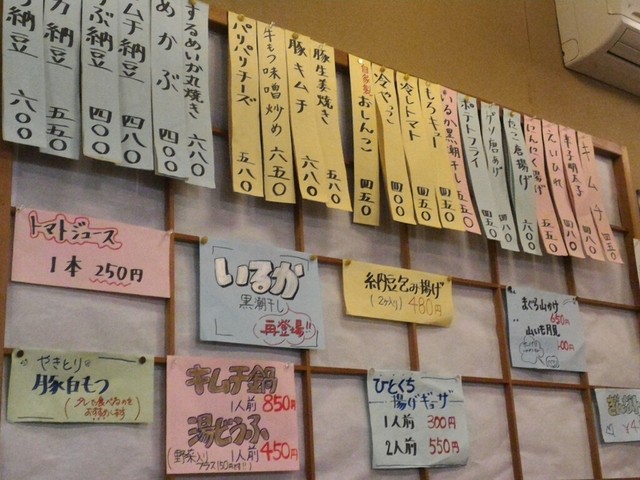 納豆 六〇〇
納豆 五五〇
ぶ納豆 四〇〇
キムチ納豆 四八〇
めかぶ 四〇〇
するめいか丸焼き 六八〇
パリパリチーズ 五八〇
牛もつ味噌炒め 六五〇
豚キムチ 六八〇
豚生姜焼き 五八〇
自家製 おしんこ 四五〇
冷やっこ 四〇〇
冷しトマト 四五〇
もろキュー 四五〇
いるか黒潮干し 五五〇
ポテトフライ 四五〇
唐あげ 四八〇
たこ唐揚げ 六〇〇
にんにく揚げ 五五〇
えいひれ 四八〇
辛子明太子 四八〇
キムチ 四五〇
トマトジュース
1本 250円
いるか
黒潮干し
再登場!!
納豆包み揚げ
(2ヶ入り) 480円
まぐろ山かけ
650円
山いも月見
やきとり
豚白もつ
(タレで食べるのを
お勧めします)
キムチ鍋
1人前 850円
湯どうふ
1人前 450円
(野菜入り
プラス150円増!!)
ひとくち
揚げギョーザ
1人前 300円
2人前 550円